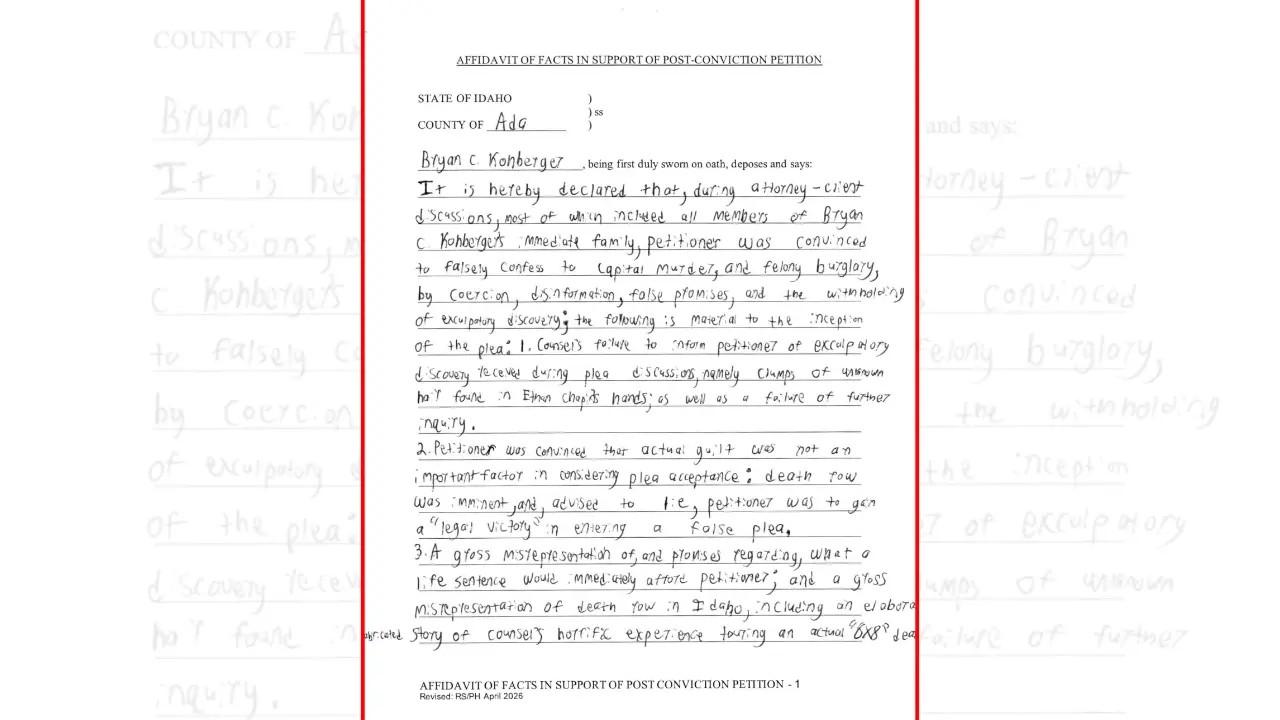 AFFIDAVIT OF FACTS IN SUPPORT OF POST-CONVICTION PETITION
STATE OF IDAHO )
) ss
COUNTY OF Ada )
Bryan C. Kohberger, being first duly sworn on oath, deposes and says:
It is hereby declared that, during attorney-client
discussions, most of which included all members of Bryan
C. Kohberger's immediate family, petitioner was convinced
to falsely confess to capital murder, and felony burglory,
by coercion, disinformation, false promises, and the withholding
of exculpatory discovery; the following is material to the inception
of the plea: 1. Counsel's failure to inform petitioner of exculpatory
discovery received during plea discussions, namely clumps of unknown
hair found in Ethan Chapin's hands; as well as a failure of further
inquiry.
2. Petitioner was convinced that actual guilt was not an
important factor in considering plea acceptance: death row
was imminent, and, advised to lie, petitioner was to gain
a "legal victory" in entering a false plea.
3. A gross misrepresentation of, and promises regarding, what a
life sentence would immediately afford petitioner; and a gross
misrepresentation of death row in Idaho, including an elabora
abricated story of counsel's horrific experience touring an actual "6X8" dea
AFFIDAVIT OF FACTS IN SUPPORT OF POST CONVICTION PETITION - 1
Revised: RS/PH April 2026